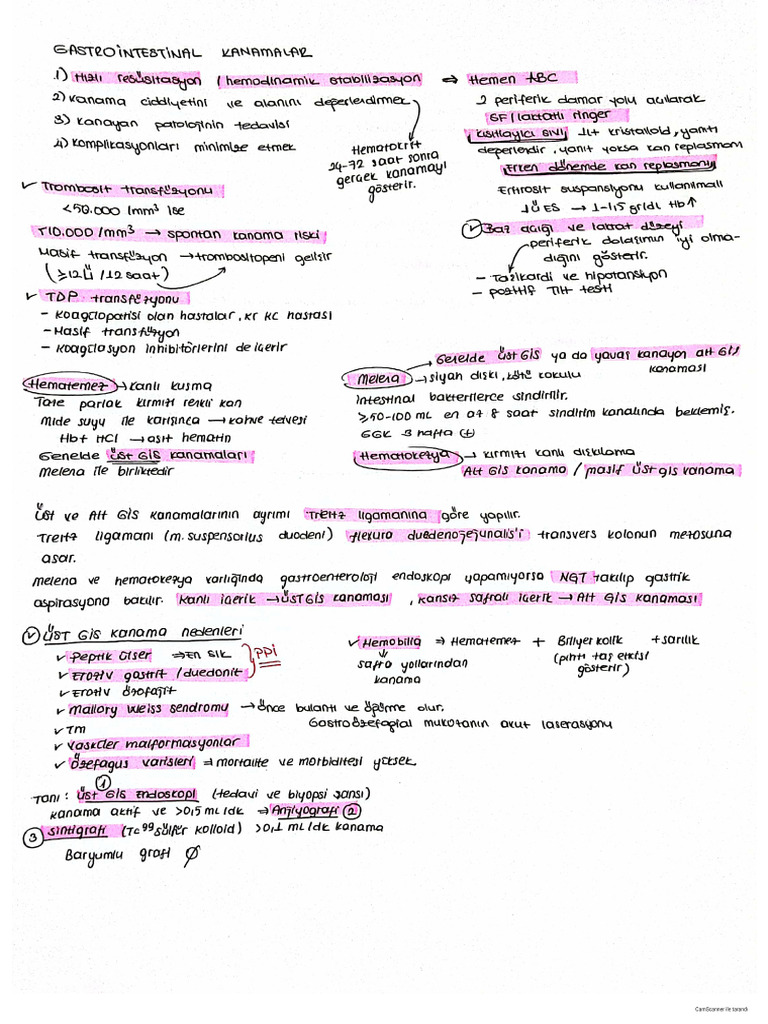 GASTROİNTESTİNAL KANAMALAR
1) Hızlı resüsitasyon / hemodinamik stabilizasyon ⇒ Hemen ABC
2) Kanama ciddiyetini ve alanını değerlendirmek
3) Kanayan patolojinin tedavisi
4) Komplikasyonları minimise etmek
Hematokrit
24-72 saat sonra
gerçek kanamayı
gösterir.
2 periferik damar yolu açılarak
SF / laktatlı ringer
Kısıtlayıcı sıvı 1 lt kristalloid, yanıtı
değerlendir, yanıt yoksa kan replasmanı
Erken dönemde kan replasmanı
Eritrosit süspansiyonu kullanılmalı
1 Ü ES → 1-1,5 gr/dl Hb ↑
✓ Baz açığı ve laktat düzeyi
periferik dolaşımın iyi olma-
dığını gösterir.
- Taşikardi ve hipotansiyon
- pozitif Tilt testi
✓ Trombosit transfüzyonu
<50.000 /mm³ ise
↑10.000 /mm³ → spontan kanama riski
Masif transfüzyon → trombositopeni gelişir
(≥12 Ü /12 saat)
✓ TDP transfüzyonu
- Koagülopatisi olan hastalar, kr KC hastası
- Masif transfüzyon
- Koagülasyon inhibitörlerini de içerir
Hematemez → Kanlı kusma
Taze parlak kırmızı renkli kan
Mide suyu ile karışınca → kahve telvesi
Hb + HCl → asit hematin
Genelde ÜST GİS kanamaları
Melena ile birliktedir
Genelde ÜST GİS ya da yavaş kanayan alt GİS
kanaması
Melena → siyah dışkı, kötü kokulu
intestinal bakterilerce sindirilir.
≥50-100 mL en az 8 saat sindirim kanalında beklemiş.
GGK 3 hafta (+)
Hematokezya → kırmızı kanlı dışkılama
Alt GİS kanama / masif üst gis kanama
Üst ve Alt GİS kanamalarının ayrımı Treitz ligamanına göre yapılır.
Treitz ligamanı (m. suspensorius duodeni) flexura duedenojejunalis'i transvers kolonun mezosuna
asar.
Melena ve hematokezya varlığında gastroenteroloji endoskopi yapamıyorsa NGT takılıp gastrik
aspirasyona bakılır. Kanlı içerik → ÜST GİS kanaması, kansız safralı içerik → Alt GİS kanaması
✓ ÜST GİS kanama nedenleri
✓ Peptik ülser ⇒ En sık
✓ Eroziv gastrit / duedonit
PPİ
✓ Eroziv özefajit
✓ Mallory Weiss sendromu → önce bulantı ve öğürme olur.
Gastroözefagial mukozanın akut laserasyonu
✓ Tm
✓ Vasküler malformasyonlar
✓ Özefagus varisleri ⇒ mortalite ve morbiditesi yüksek
✓ Hemobilia ⇒ Hematemez + Biliyer kolik + sarılık
safra yollarından
kanama
(pıhtı taş etkisi
gösterir)
Tanı: ① üst GİS endoskopi (tedavi ve biyopsi şansı)
Kanama aktif ve >0,5 mL/dk ⇒ Anjiyografi ②
③ Sintigrafi (Tc⁹⁹ sülfür kolloid) >0,1 mL/dk kanama
Baryumlu grafi ∅
CamScanner ile tarandı